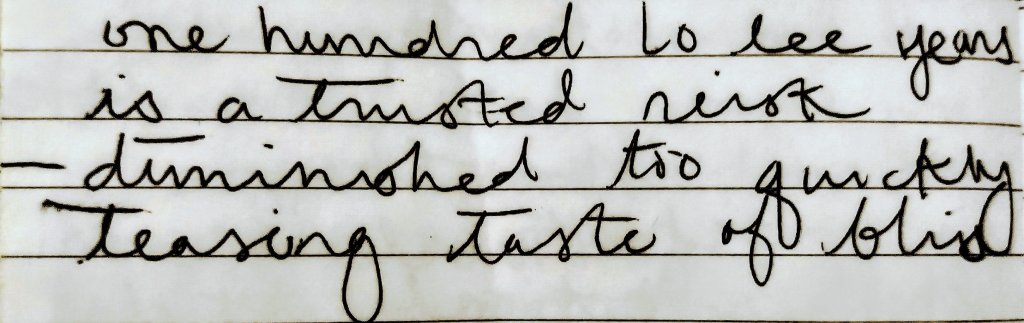 one hundred to lee years
is a trusted risk
— diminished too quickly
teasing taste of bliss